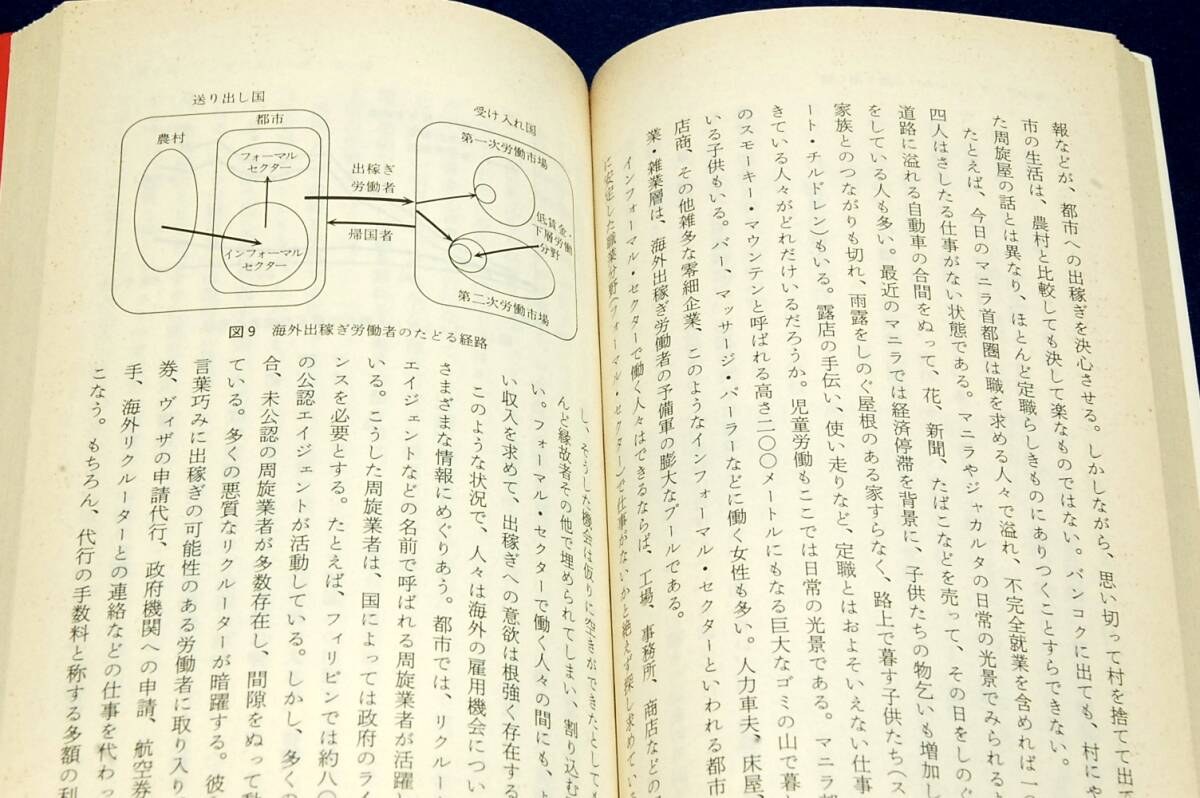 報などが、都市への出稼ぎを決心させる。しかしながら、思い切って村を捨てて出て
市の生活は、農村と比較しても決して楽なものではない。バンコクに出ても、村にや
た周旋屋の話とは異なり、ほとんど定職らしきものにありつくことすらできない。
たとえば、今日のマニラ首都圏は職を求める人々で溢れ、不完全就業を含めれば一〇
四人はさしたる仕事がない状態である。マニラやジャカルタの日常の光景でみられると
道路に溢れる自動車の合間をぬって、花、新聞、たばこなどを売って、その日をしのぐ
をしている人も多い。最近のマニラでは経済停滞を背景に、子供たちの物乞いも増加し
家族とのつながりも切れ、雨露をしのぐ屋根のある家すらなく、路上で暮す子供たち(ス
ート・チルドレン)もいる。露店の手伝い、使い走りなど、定職とはおよそいえない仕事
きている人々がどれだけいるだろうか。児童労働もここでは日常の光景である。マニラ
のスモーキー・マウンテンと呼ばれる高さ二〇〇メートルにもなる巨大なゴミの山で暮
いる子供もいる。バー、マッサージ・パーラーなどに働く女性も多い。人力車夫、床屋、
店商、その他雑多な零細企業、このようなインフォーマル・セクターといわれる都市
業・雑業層は、海外出稼ぎ労働者の予備軍の膨大なプールである。
インフォーマル・セクターで働く人々はできるならば、工場、事務所、商店などの
に安定した職業分野(フォーマル・セクター)で仕事がないかと絶えず探し求めている
送り出し国
農村
都市
フォーマル
セクター
インフォーマル
セクター
出稼ぎ
労働者
帰国者
受け入れ国
第一次労働市場
低賃金・
下層労働
分野
第二次労働市場
図9 海外出稼ぎ労働者のたどる経路
し、そうした機会は仮りに空きができたとしても
んど縁故者その他で埋められてしまい、割り込む
い。フォーマル・セクターで働く人々の間にも、よ
い収入を求めて、出稼ぎへの意欲は根強く存在する
このような状況で、人々は海外の雇用機会につい
さまざまな情報にめぐりあう。都市では、リクルー
エイジェントなどの名前で呼ばれる周旋業者が活躍
いる。こうした周旋業者は、国によっては政府のライ
ンスを必要とする。たとえば、フィリピンでは約八〇
の公認エイジェントが活動している。しかし、多くの
合、未公認の周旋業者が多数存在し、間隙をぬって
ている。多くの悪質なリクルーターが暗躍する。彼
言葉巧みに出稼ぎの可能性のある労働者に取り入り
券、ヴィザの申請代行、政府機関への申請、航空券
手、海外リクルーターとの連絡などの仕事を代わっ
こなう。もちろん、代行の手数料と称する多額の利